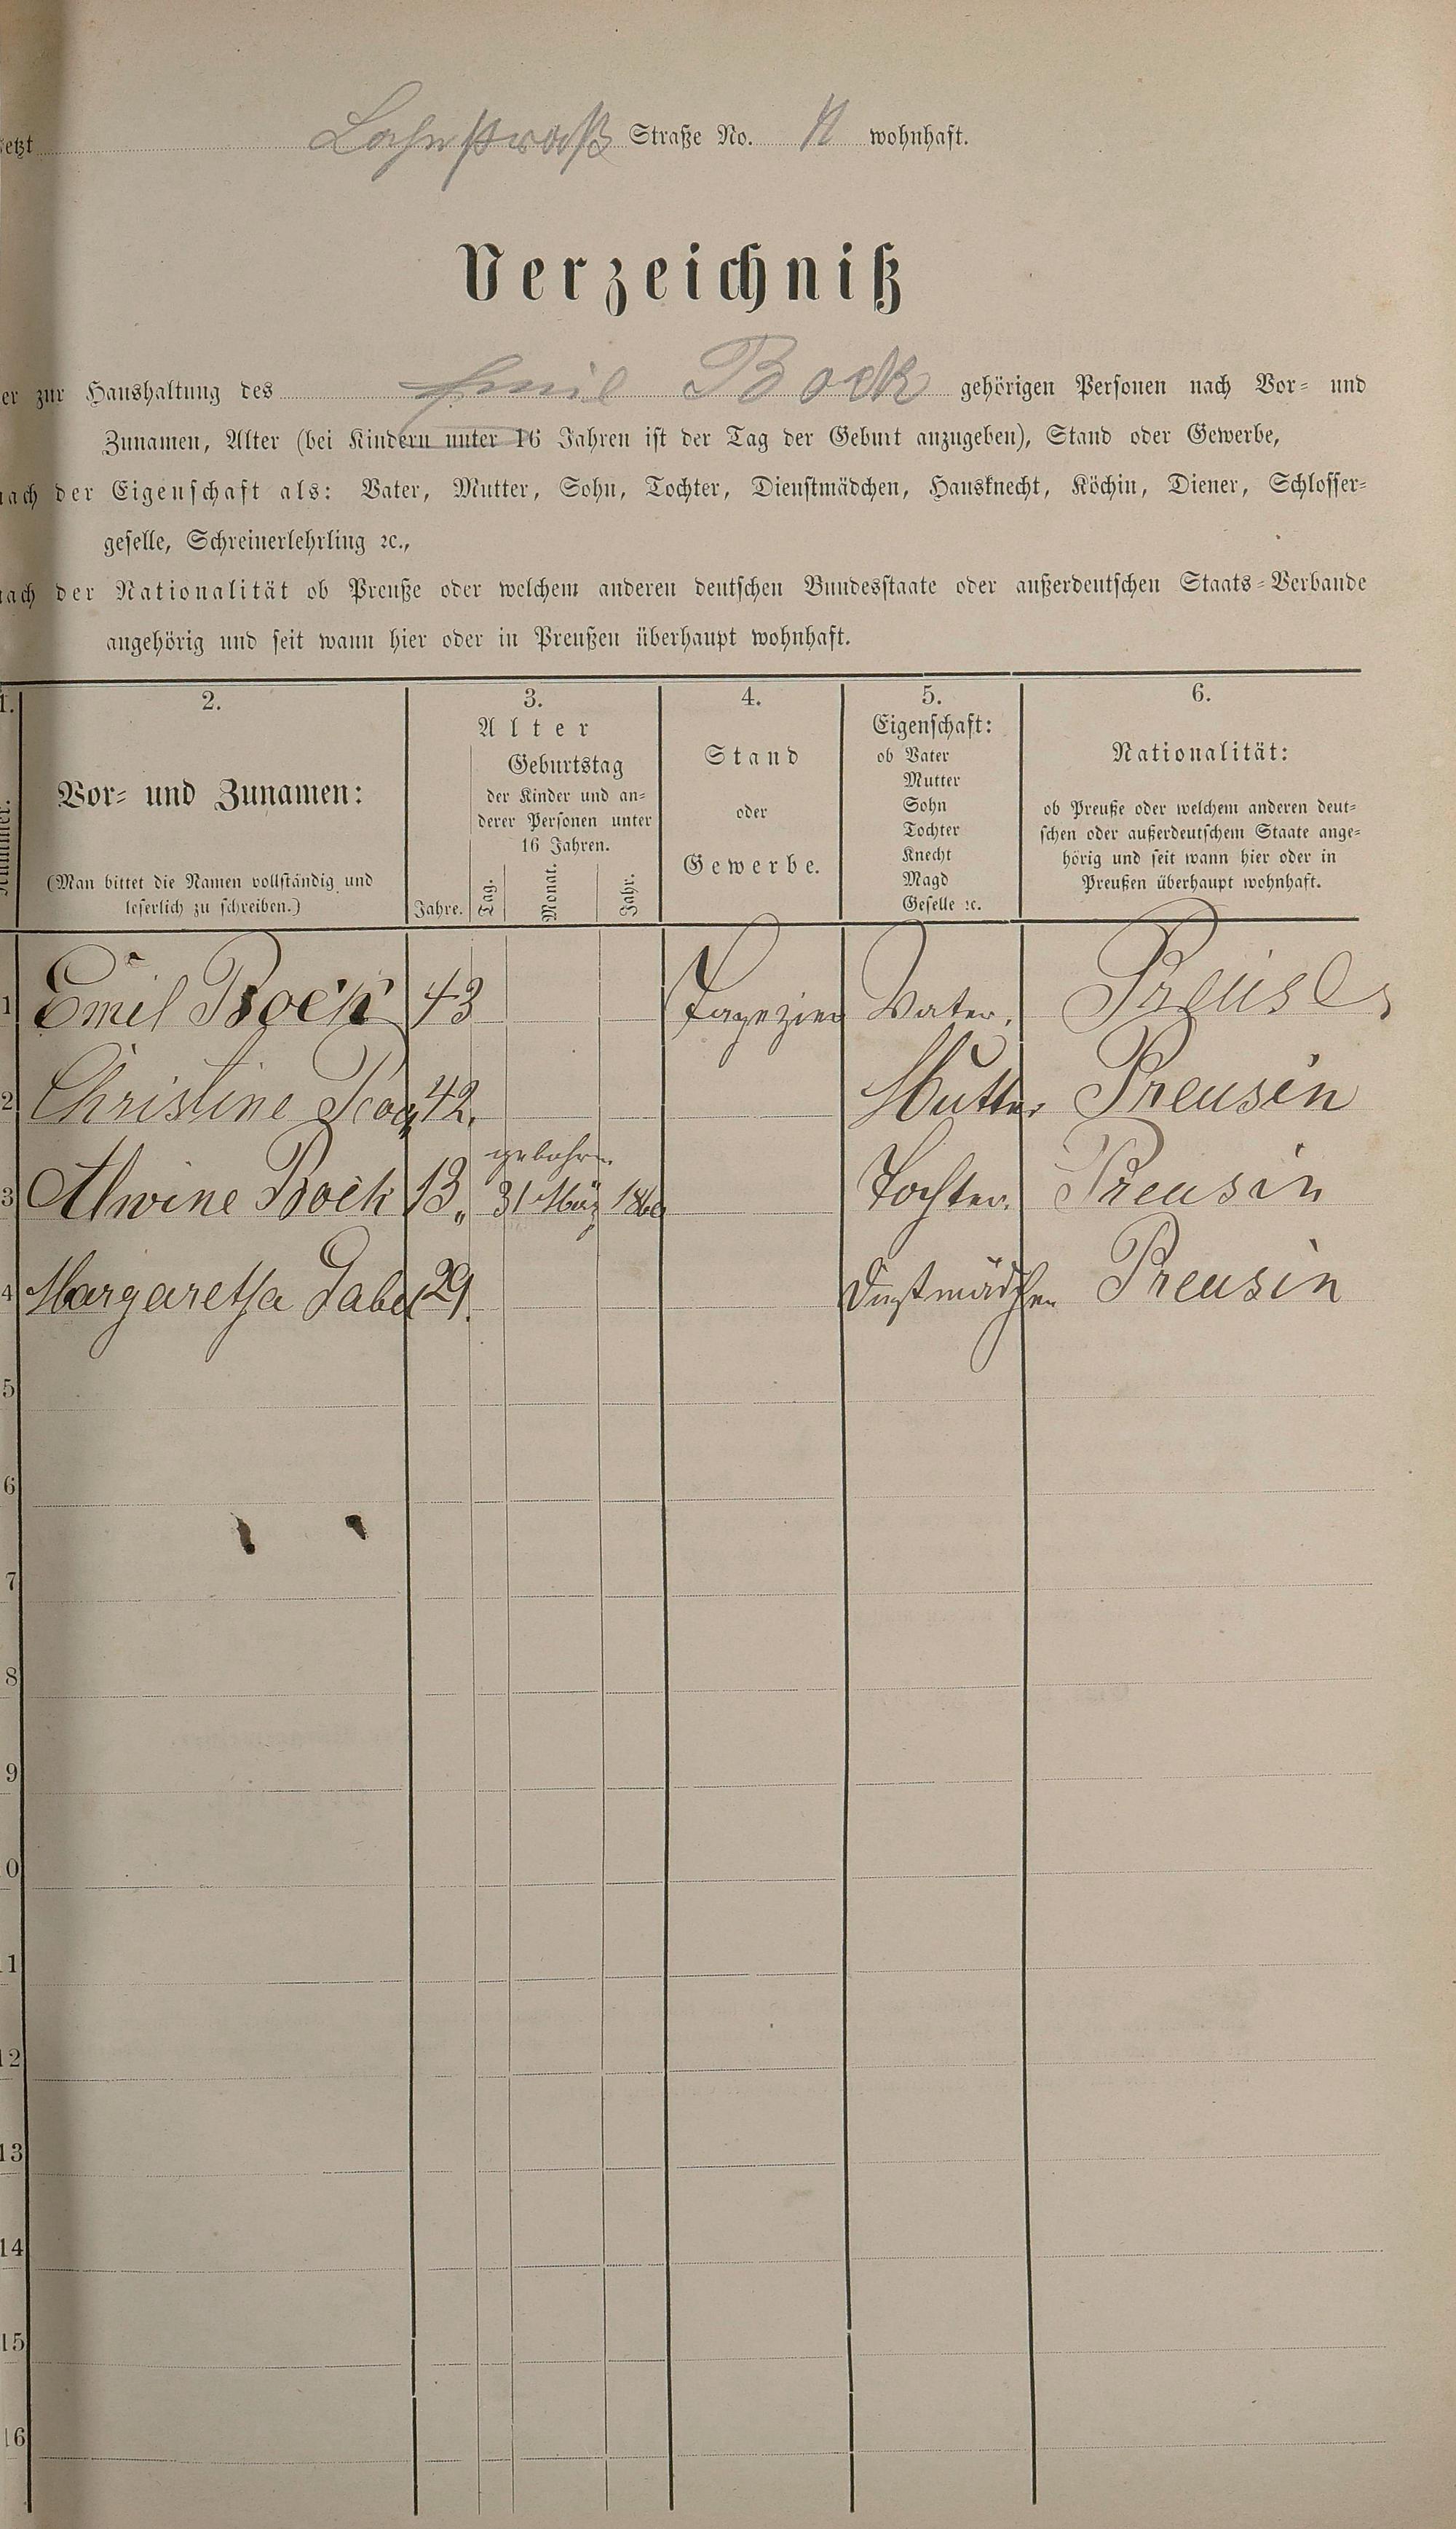 etzt Lahnstraß Straße No. wohnhaft.
Verzeichniß
er zur Haushaltung des Emil Bock gehörigen Personen nach Vor- und
Zunamen, Alter (bei Kindern unter 16 Jahren ist der Tag der Geburt anzugeben), Stand oder Gewerbe,
nach der Eigenschaft als: Vater, Mutter, Sohn, Tochter, Dienstmädchen, Hausknecht, Köchin, Diener, Schlosser-
geselle, Schreinerlehrling ꝛc.,
nach der Nationalität ob Preuße oder welchem anderen deutschen Bundesstaate oder außerdeutschen Staats-Verbande
angehörig und seit wann hier oder in Preußen überhaupt wohnhaft.
1. 2. 3. 4. 5. 6.
Nummer.
Vor- und Zunamen:
(Man bittet die Namen vollständig und
leserlich zu schreiben.)
Alter
Geburtstag
der Kinder und an-
derer Personen unter
16 Jahren.
Jahre. Tag. Monat. Jahr.
Stand
oder
Gewerbe.
Eigenschaft:
ob Vater
Mutter
Sohn
Tochter
Knecht
Magd
Geselle ꝛc.
Nationalität:
ob Preuße oder welchem anderen deut-
schen oder außerdeutschem Staate ange-
hörig und seit wann hier oder in
Preußen überhaupt wohnhaft.
1 Emil Bock 43 Tapezier Vater. Preuse
2 Christine 42. Mutter Preusin
gebohren
3 Alwine Bock 13 31 März Tochter. Preusin
4 Margaretha Gabel 29. Dinstmädchen Preusin
5
6
7
8
9
0
1
12
13
14
15
16